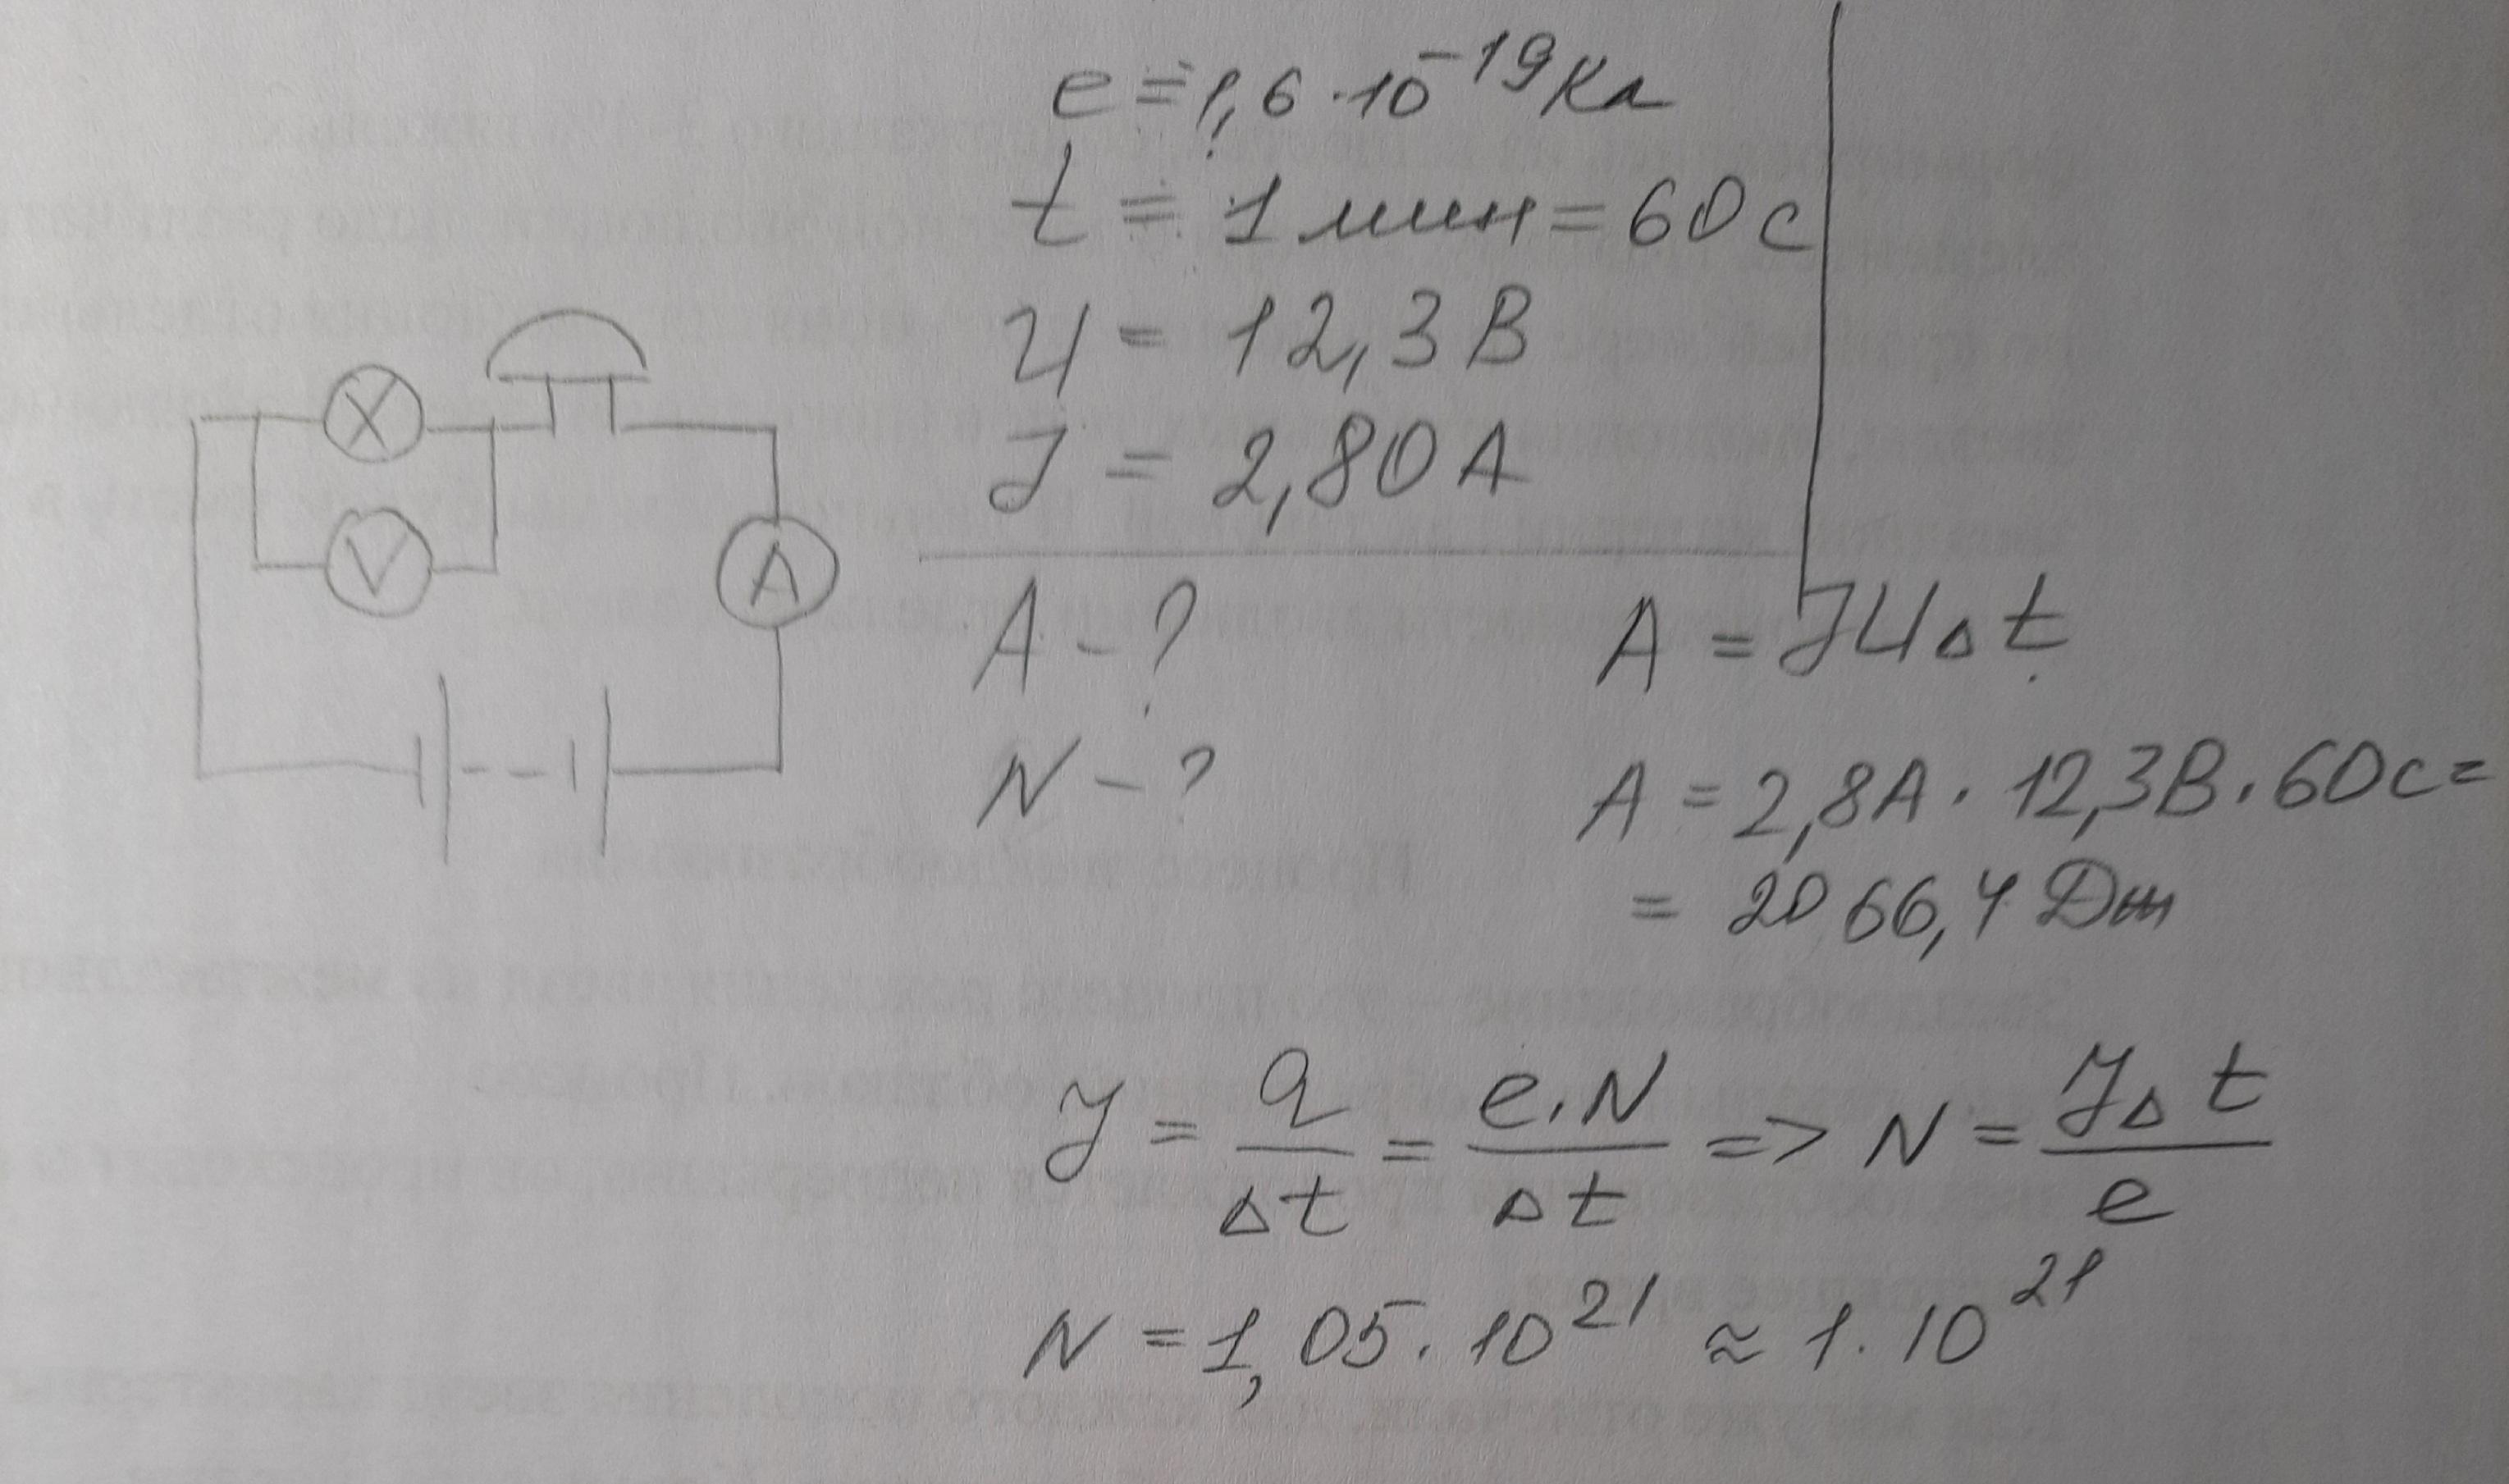 e = 1,6 · 10⁻¹⁹ Кл
t = 1 мин = 60 с
U = 12,3 В
J = 2,80 А
X
V
A
A - ?
N - ?
A = JUΔt
A = 2,8А · 12,3В · 60с =
= 2066,4 Дж
J = q/Δt = e·N/Δt => N = JΔt/e
N = 1,05 · 10²¹ ≈ 1 · 10²¹